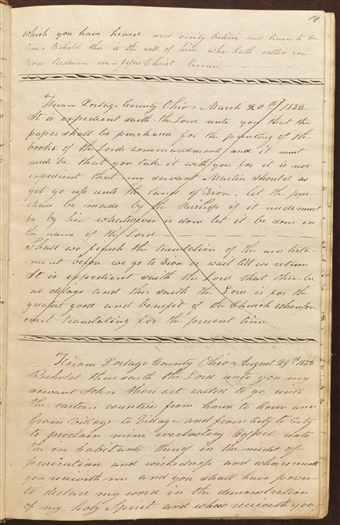 19
which you have heard and verily believe and know to be
true Behold this is the will of him who hath called you
your Redeemer even Jesus Christ Amen
Hiram Portage County Ohio March 20th 1832
It is expedient saith the Lord unto you that the
paper shall be purchased for the printing of the
books of the Lords commandments and it must
needs be that you take it with you for it is not
expedient that my servant Martin should as
yet go up unto the land of Zion. Let the pur
chase be made by the Bishop if it needs must
be by hire whatsoever is done let it be done in
the name of the Lord
Shall we finish the translation of the new testa
ment before we go to Zion or wait till we return
It is expedient saith the Lord that there be
no delays and this saith the Lord is for the
greatest good and benefit of the Church wherefore
omit translating for the present time
Hiram Portage County Ohio August 29th 1832
Behold thus saith the Lord unto you my
servant John thou art called to go unto
the eastern countries from house to house and
from village to village and from city to city
to proclaim mine everlasting Gospel unto
the inhabitants thereof in the midst of
persecution and wickedness and whoso receiveth
you receiveth me and you shall have power
to declare my word in the demonstration
of my holy Spirit and whoso receiveth you